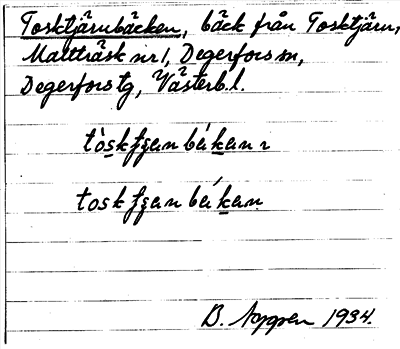 Tosktjärnbäcken, bäck från Tosktjärn,
Mattträsk nr 1, Degerfors sn,
Degerfors tg, Västerb. l.
tòskʃʒan bákan 2
toskʃʒan bákan
B. 1934.